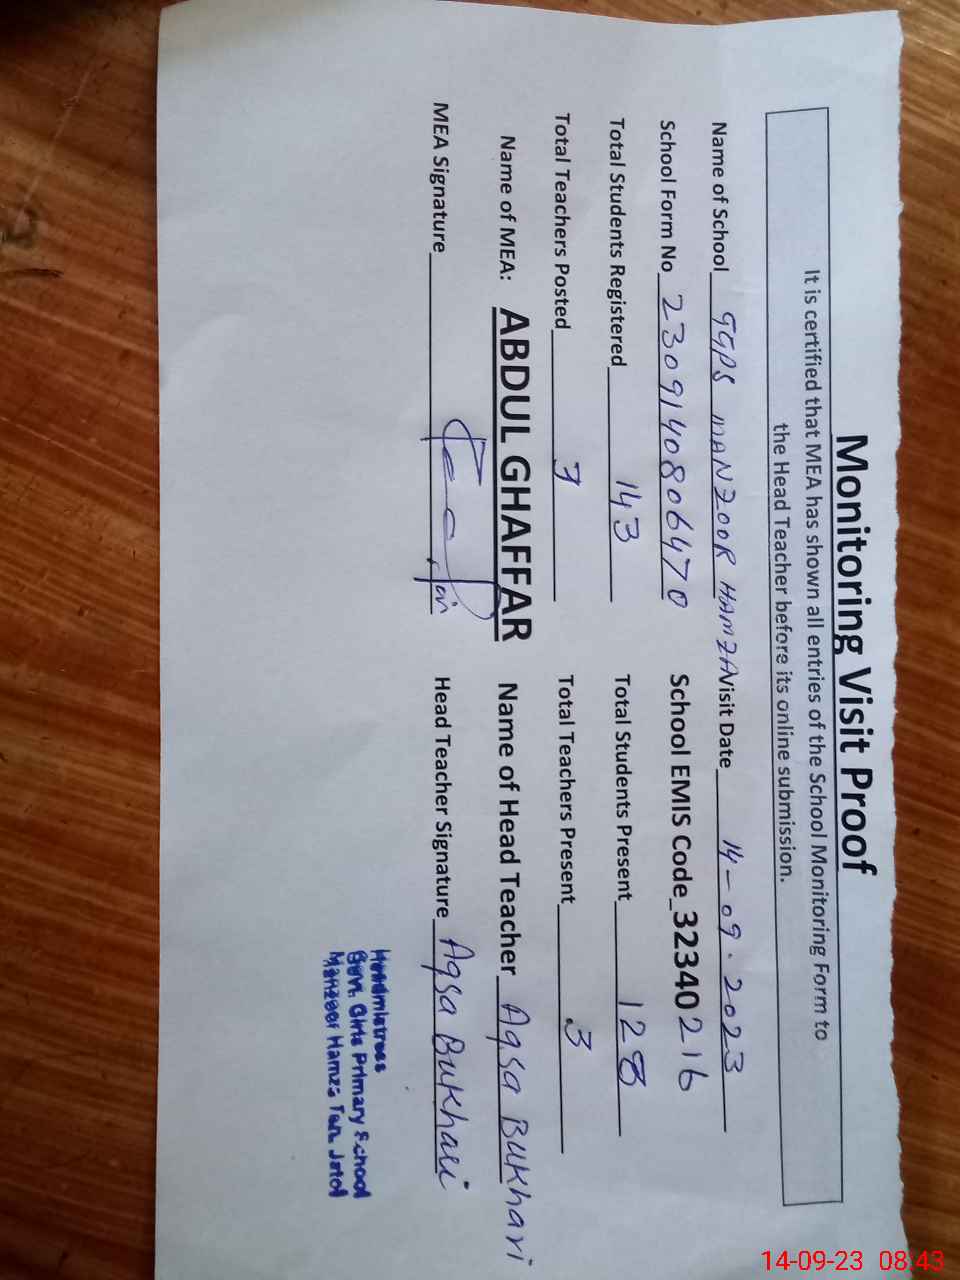 Monitoring Visit Proof
It is certified that MEA has shown all entries of the School Monitoring Form to
the Head Teacher before its online submission.
Name of School GGPS MANZOOR HAMZA Visit Date 14-09-2023
School Form No 2309140806470 School EMIS Code 32340216
Total Students Registered 143 Total Students Present 128
Total Teachers Posted Total Teachers Present 3
Name of MEA: ABDUL GHAFFAR Name of Head Teacher Aqsa Bukhari
MEA Signature Head Teacher Signature Aqsa Bukhari
Headmistress
Govt. Girls Primary School
Manzoor Hamza Teh. Jatoi
14-09-23 08:43